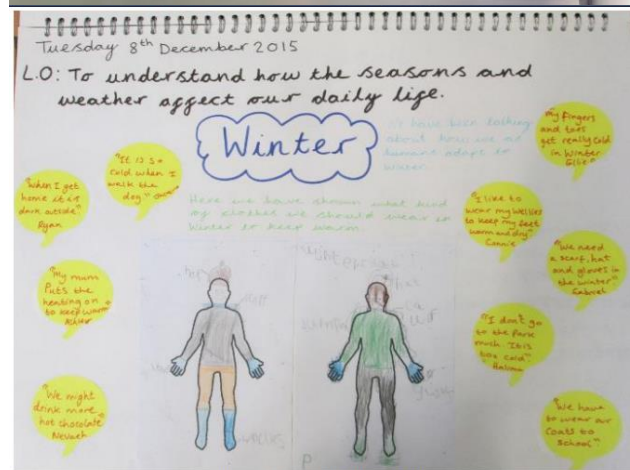 Tuesday 8th December 2015
L.O: To understand how the seasons and
weather affect our daily life.
Winter
have been looking
about how we as
humans adapt to
winter
Here we have shown what kind
of clothes we should wear in
Winter to keep warm
"It is so
cold when I
walk the
dog"
"When I get
home it is
dark outside"
Ryan
"My mum
Puts the
heating on
to keep warm"
"We might
drink more
hot chocolate"
Nevaeh
"My fingers
and toes
get really cold
in winter"
Ellie
"I like to
wear my wellies
to keep my feet
warm and dry"
Connie
"We need
a scarf, hat
and gloves in
the winter"
Gabriel
"I don't go
to the park
much. It is
too cold"
Halima
"We have
to wear our
Coats to
School"
hat